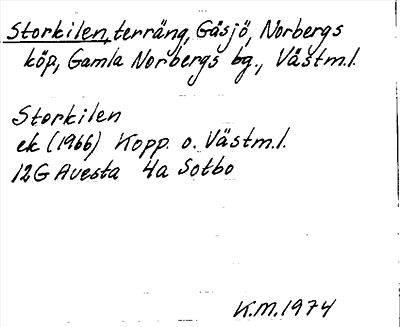 Storkilen, terräng, Gäsjö, Norbergs
köp, Gamla Norbergs bg., Västm.l.
Storkilen
ek (1966) Kopp. o. Västm.l.
12G Avesta 4a Sotbo
K.M. 1974